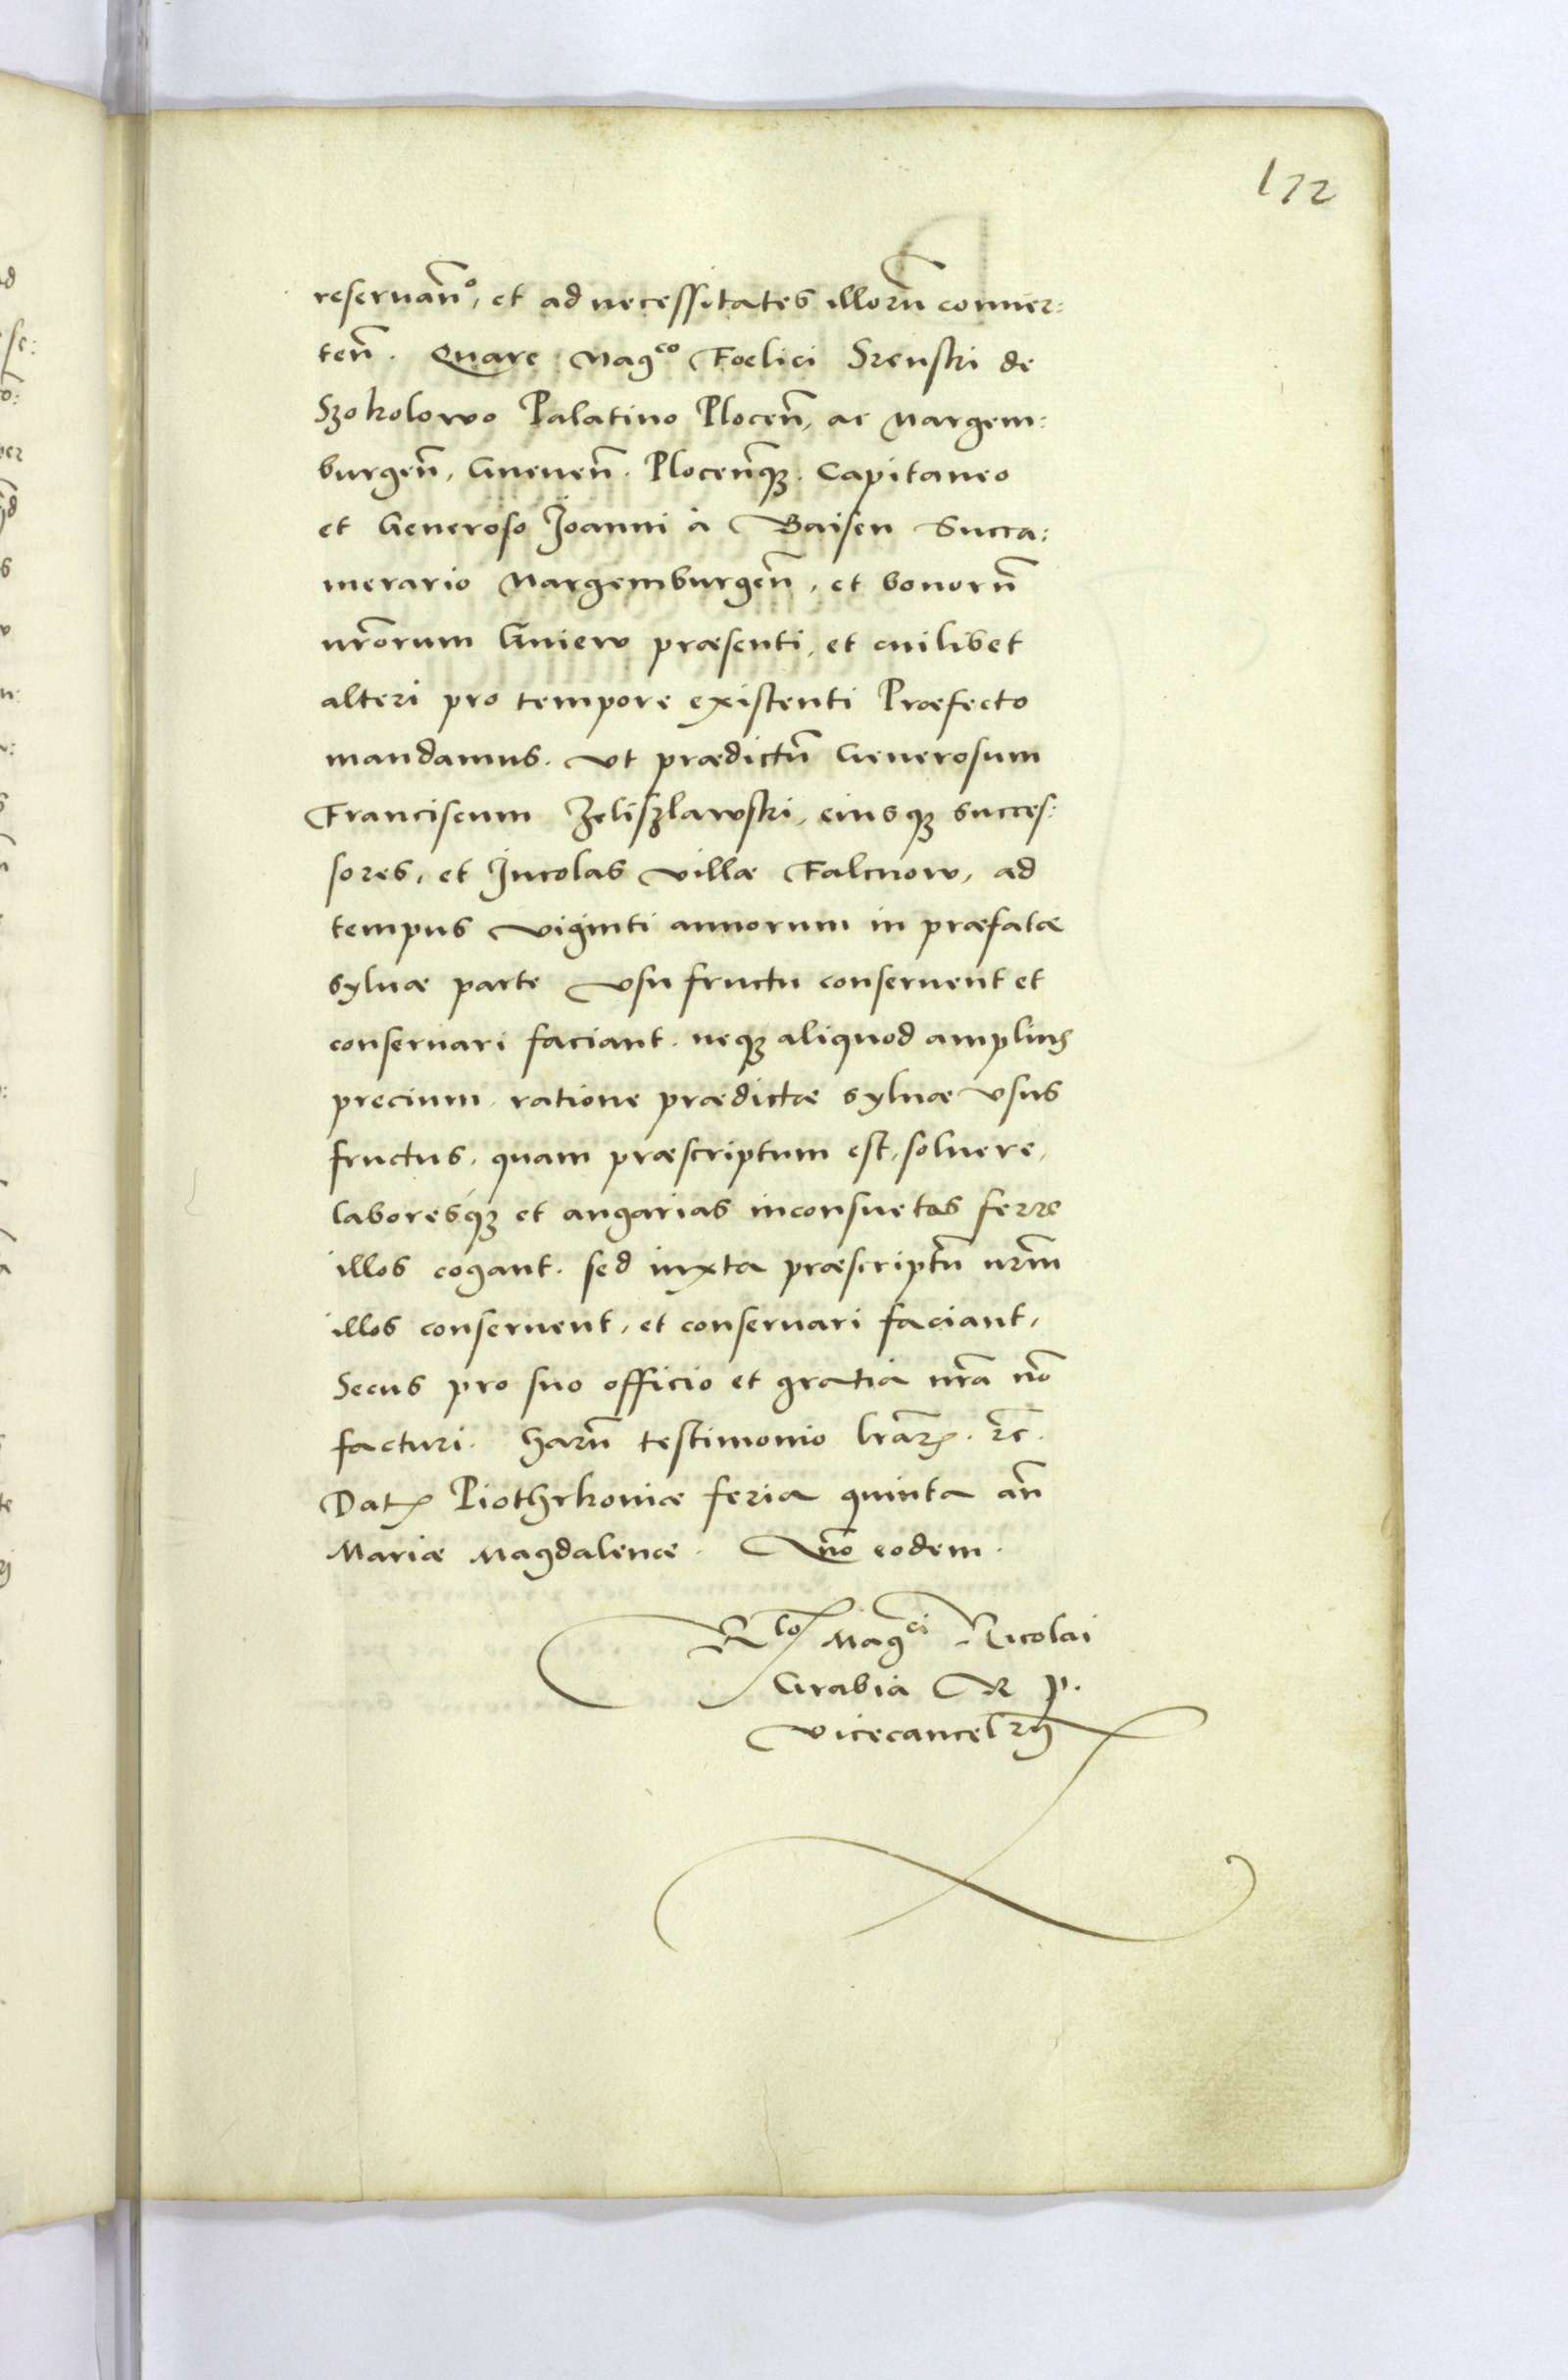 172
reseruan̄°, et ad necessitates illorū conuer:
ten̄. Quare Mag͞co Foelici Srenski de
Szokolowo Palatino Plocen̄, ac Margem:
burgen̄, Gneuen̄. Plocen̄q3. Capitaneo
et Generoso Joanni à Baisen Succa:
merario Margemburgen̄, et bonorū
nr̄orum Gniew præsenti, et cuilibet
alteri pro tempore existenti Præfecto
mandamus. Vt prædictū Generosum
Franciscum Zeliszlawski, eiusq3 succes:
sores, et Jncolas villæ Falcnow, ad
tempus viginti annorum in præfatæ
syluæ parte vsu fructu conseruent et
conseruari faciant. neq3 aliquod amplius
precium, ratione prædictæ syluæ vsus
fructus, quam præscriptum est, soluere,
laboresq3 et angarias inconsuetas ferre
illos cogant. sed iuxta præscriptū nr̄m
illos conseruent, et conseruari faciant,
Secus pro suo officio et gratia nr̄a nō
facturi. Harū testimonio lr̄aꝝ. ⁊c̄.
Datꝝ Piothrkoniæ feria quinta an̄
Mariæ Magdalenæ. Ann̄o eodem.
Rlo Mag͞ci Nicolai
Grabia R P.
Vicecancelrij